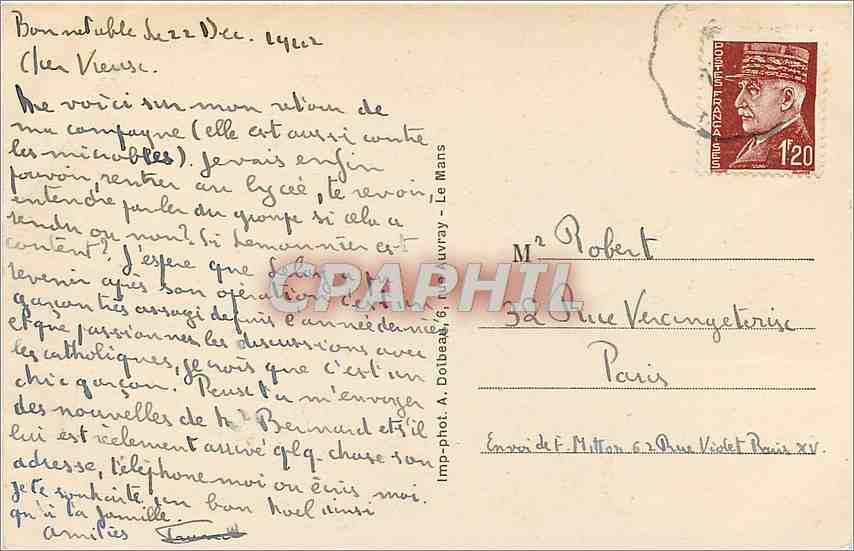 Bonnetable le 22 Dec. 1942
Cher Vieux.
Me voici sur mon retour de
ma campagne (elle est aussi contre
les microbles). Je vais enfin
pouvoir, rentrer au lycée, te revoir,
entendre parler du groupe si cela a
rendu ou non? Si Lemonnier est
content? J'espere que
revenir après son opération c'est un
garçon très assagi depuis l'année dernière
et que passionnes les discussions avec
les catholiques, je crois que c'est un
chic garçon. Peux tu m'envoyer
des nouvelles de Mr Bernard et s'il
lui est réelement arrivé qlq. chose son
adresse, téléphone moi ou écris moi.
Je te souhaite un bon Noel ainsi
qu'à ta famille.
Amitiés
Imp-phot. A. Dolbeau, 6, rue Auvray - Le Mans
POSTES FRANÇAISES
1F20
Mr Robert
32 Rue Vercingetorise
Paris
Envoi de F. Mitton 62 Rue Violet Paris XV.
CPAPHIL